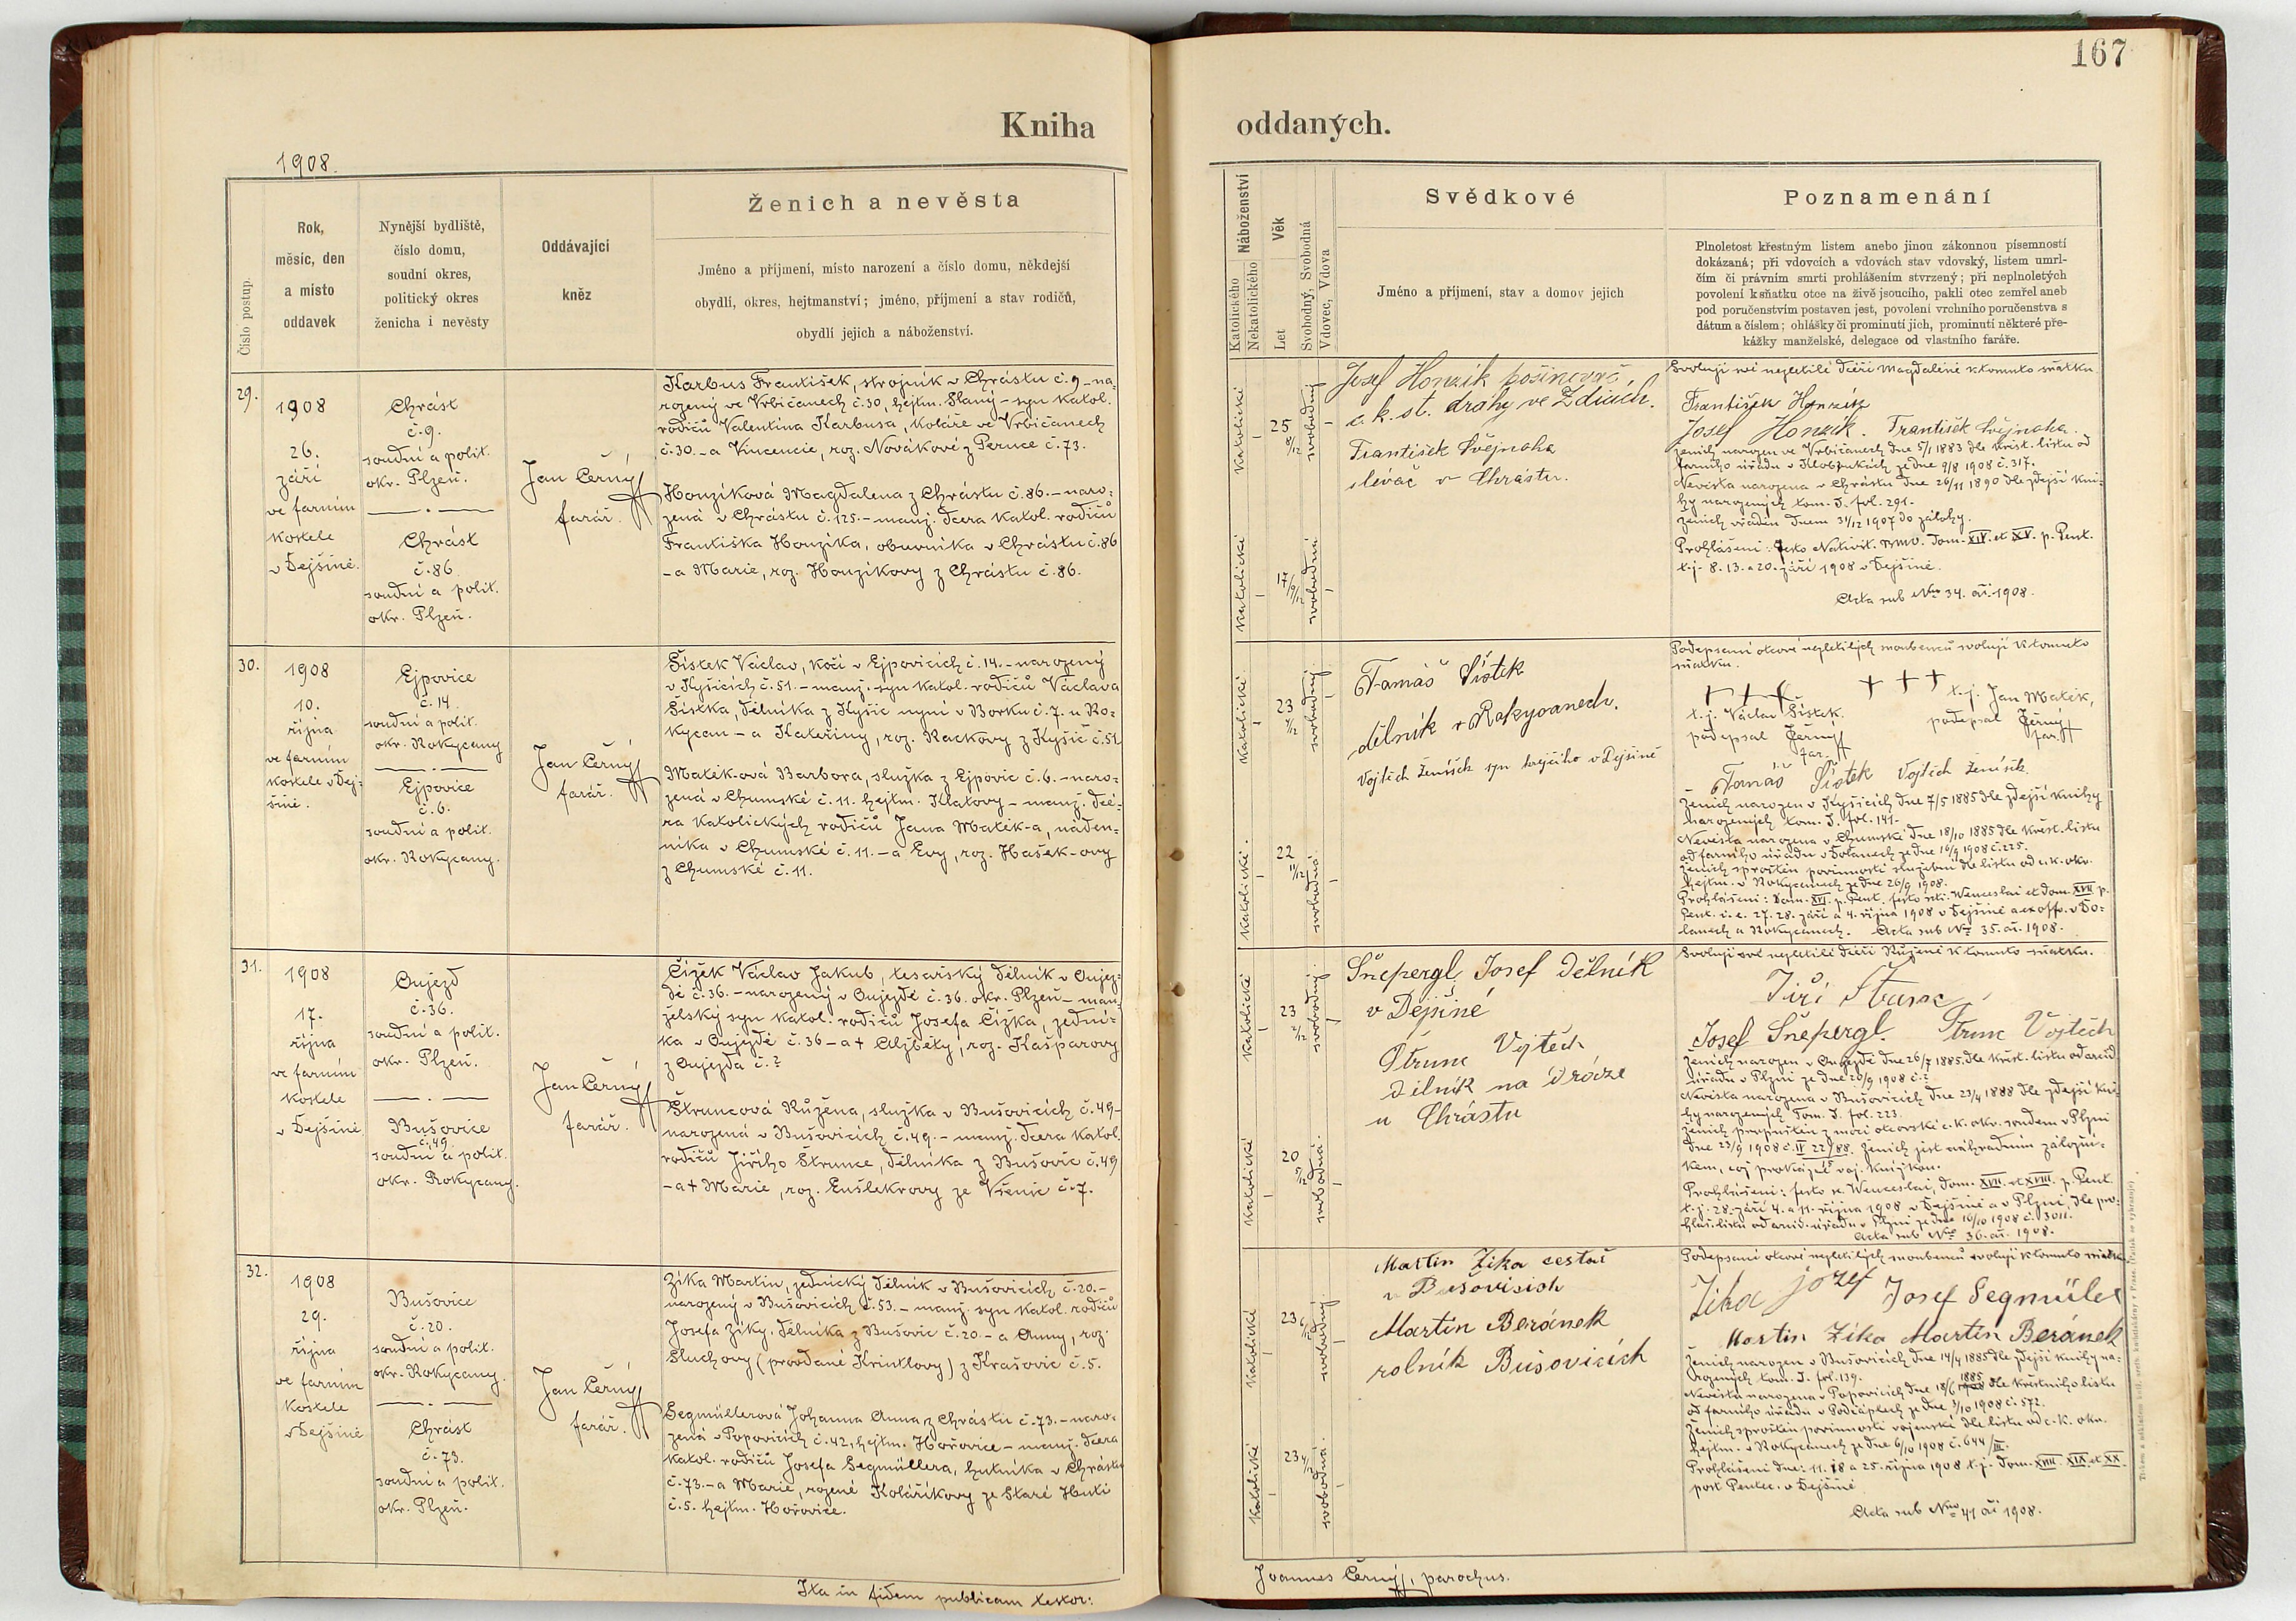 167
Kniha
oddaných.
1908.
Číslo postup.
Rok,
měsíc, den
a místo
oddavek
Nynější bydliště,
číslo domu,
soudní okres,
politický okres
ženicha i nevěsty
Oddávající
kněz
Ženich a nevěsta
Jméno a příjmení, místo narození a číslo domu, někdejší
obydlí, okres, hejtmanství; jméno, příjmení a stav rodičů,
obydlí jejich a náboženství.
Náboženství
Katolického
Nekatolického
Věk
Let
Svobodný, Svobodná
Vdovec, Vdova
Svědkové
Jméno a příjmení, stav a domov jejich
Poznamenání
Plnoletost křestným listem anebo jinou zákonnou písemností
dokázaná; při vdovcích a vdovách stav vdovský, listem umrl-
čím či právním smrti prohlášením stvrzený; při neplnoletých
povolení k sňatku otce na živě jsoucího, pakli otec zemřel aneb
pod poručenstvím postaven jest, povolení vrchního poručenstva s
dátum a číslem; ohlášky či prominutí jich, prominutí některé pře-
kážky manželské, delegace od vlastního faráře.
29.
1908
26.
září
ve farním
kostele
v Dejšině.
Chrást
č. 9.
soudní a polit.
okr. Plzeň.
Chrást
č. 86
soudní a polit.
okr. Plzeň.
Jan Černý
farář.
Karbus František, strojník v Chrástu č. 9 - na-
rozený ve Vrbičanech č. 30, hejtm. Slaný - syn katol.
rodičů Valentina Karbusa, koláře ve Vrbičanech
č. 30. - a Vincencie, roz. Novákové z Peruce č. 73.
Honzíková Magdalena z Chrástu č. 86. - naro-
zená v Chrástu č. 125. - manž. dcera katol. rodičů
Františka Honzíka, obuvníka v Chrástu č. 86
- a Marie, roz. Honzíkovy z Chrástu č. 86.
katolické
25 8/12
svobodný
katolické
17 9/12
svobodná
Josef Honzík pošinovač
c. k. st. dráhy ve Zdicích.
František Švejnoha
slévač v Chrástu.
Svoluji své nezletilé dceři Magdaleně k tomuto sňatku.
František Honzík
Josef Honzík. František Švejnoha.
Ženich narozen ve Vrbičanech dne 5/1 1883 dle křest. listu od
farního úřadu v Klobukách ze dne 9/8 1908 č. 317.
Nevěsta narozena v Chrástu dne 26/11 1890 dle zdejší kni-
hy narozených tom. I. fol. 291.
Ženich vřaděn dnem 31/12 1907 do zálohy.
Prohlášeni: festo Nativit. BMV. Dom. XIV. et XV. p. Pent.
t.j. 8. 13. a 20. září 1908 v Dejšině.
Acta sub Nro 34. ai. 1908.
30.
1908
10.
října
ve farním
kostele v Dej-
šině.
Ejpovice
č. 14.
soudní a polit.
okr. Rokycany
Ejpovice
č. 6.
soudní a polit.
okr. Rokycany.
Jan Černý
farář.
Šístek Václav, kočí v Ejpovicích č. 14. - narozený
v Kyšicích č. 51. - manž. syn katol. rodičů Václava
Šístka, dělníka z Kyšic nyní v Borku č. 7. u Ro-
kycan - a Kateřiny, roz. Rackovy z Kyšic č. 51
Maték-ová Barbora, služka z Ejpovic č. 6. - naro-
zená v Chumské č. 11. hejtm. Klatovy - manž. dce-
ra katolických rodičů Jana Matěk-a, náden-
níka v Chumské č. 11. - a Evy, roz. Hašek-ovy
z Chumské č. 11.
katolické
23 5/12
svobodný
katolické.
22 11/12
svobodná
Tomáš Šístek
dělník v Rokycanech.
Vojtěch Ženíšek syn krejčího v Dejšině
Podepsaní otcové nezletilých snoubenců svolují k tomuto
sňatku.
+++
t.j. Václav Šístek.
podepsal Černý
far.
+++
t.j. Jan Matěk,
podepsal Černý
far.
Tomáš Šístek Vojtěch Ženíšek
Ženich narozen v Kyšicích dne 7/5 1885 dle zdejší knihy
narozených tom. I. fol. 141.
Nevěsta narozena v Chumské dne 18/10 1885 dle křest. listu
od farního úřadu v Dolanech ze dne 16/9 1908 č. 225.
Ženich sproštěn povinnosti služební dle listu od c. k. okr.
hejtm. v Rokycanech ze dne 26/9 1908.
Prohlášeni: Dom. XVI. p. Pent. festo scti. Wenceslai et Dom. XVII. p.
Pent. i.e. 27. 28. září a 4. října 1908 v Dejšině a ex off. v Do-
lanech a Rokycanech. Acta sub Nro 35. ai. 1908.
31.
1908
17.
října
ve farním
kostele
v Dejšině
Oujezd
č. 36.
soudní a polit.
okr. Plzeň.
Bušovice
č. 49.
soudní a polit.
okr. Rokycany.
Jan Černý
farář.
Čížek Václav Jakub, tesařský dělník v Oujez-
dě č. 36. - narozený v Oujezdě č. 36. okr. Plzeň - man-
želský syn katol. rodičů Josefa Čížka, zední-
ka v Oujezdě č. 36 - a + Alžběty, roz. Kašparovy
z Oujezda č. ?
Štruncová Růžena, služka v Bušovicích č. 49 -
narozená v Bušovicích č. 49. - manž. dcera katol.
rodičů Jiřího Štrunce, dělníka z Bušovic č. 49
- a + Marie, roz. Enšlekrovy ze Všenic č. 7.
katolické
23 2/12
svobodný
katolické
20 5/12
svobodná
Šnepergl Josef dělník
v Dejšině
Štrunc Vojtěch
dělník na dráze
u Chrástu
Svoluji své nezletilé dceři Růženě k tomuto sňatku.
Jiří Štrunc
Josef Šnepergl. Štrunc Vojtěch
Ženich narozen v Oujezdě dne 26/7 1885. dle křest. listu od arcid.
úřadu v Plzni ze dne 26/9 1908 č. ?
Nevěsta narozena v Bušovicích dne 23/4 1888 dle zdejší kni-
hy narozených Tom. I. fol. 223.
Ženich propuštěn z moci otcovské c. k. okr. soudem v Plzni
dne 23/9 1908 Ženich jest náhradním záložní-
kem, což prokázal voj. knížkou.
Prohlášeni: festo sc. Wenceslai, Dom. XVII. et XVIII. p. Pent.
t.j. 28. září 4. a 11. října 1908 v Dejšině a v Plzni, dle pro-
hláš. listu od arcid. úřadu v Plzni ze dne 16/10 1908 č. 3011.
Acta sub Nro 36. ai. 1908.
32.
1908
29.
října
ve farním
kostele
v Dejšině
Bušovice
č. 20.
soudní a polit.
okr. Rokycany.
Chrást
č. 73.
soudní a polit.
okr. Plzeň.
Jan Černý
farář.
Zíka Martin, zednický dělník v Bušovicích č. 20. -
narozený v Bušovicích č. 53. - manž. syn katol. rodičů
Josefa Zíky, dělníka z Bušovic č. 20 - a Anny, roz.
Sluchovy (provdané Krinklovy) z Krašovic č. 5.
Segmüllerová Johanna Anna z Chrástu č. 73. - naro-
zená v Popovicích č. 42, hejtm. Hořovice - manž. dcera
katol. rodičů Josefa Segmüllera, hutníka v Chrástu
č. 73. - a Marie, rozené Koláříkovy ze Staré Huti
č. 5. hejtm. Hořovice.
katolické
23 6/12
svobodný
katolické
23 4/12
svobodná.
Martin Zíka cestař
v Bušovicích
Martin Beránek
rolník Bušovicích
Podepsaní otcové nezletilých snoubenců svolují k tomuto sňatku
Zika jozef Josef Segmüller
Martin Zíka Martin Beránek
Ženich narozen v Bušovicích dne 14/4 1885 dle zdejší knihy na-
rozených tom. I. fol. 139.
Nevěsta narozena v Popovicích dne 18/6 1885 dle křestního listu
od farního úřadu v Počáplech ze dne 3/10 1908 č. 572.
Ženich sproštěn povinnosti vojenské dle listu od c. k. okr.
hejtm. v Rokycanech ze dne 6/10 1908 č. 644/III.
Prohlášeni dne: 11. 18 a 25. října 1908 t.j. Dom. XVIII. XIX. et XX.
post Pentec. v Dejšině
Acta sub Nro 41 ai 1908.
Ita in fidem publicam testor:
Joannes Černý, parochus.